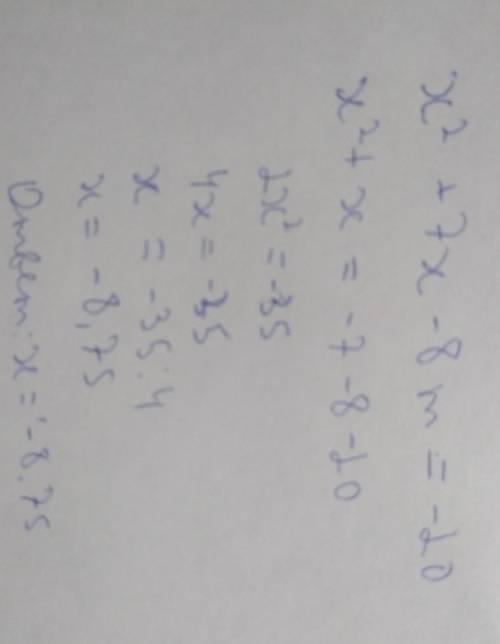 x² + 7x - 8н = -20
x² + x = -7 -8 -20
2x² = -35
4x = -35
x = -35 : 4
x = -8,75
Ответ: x = -8.75